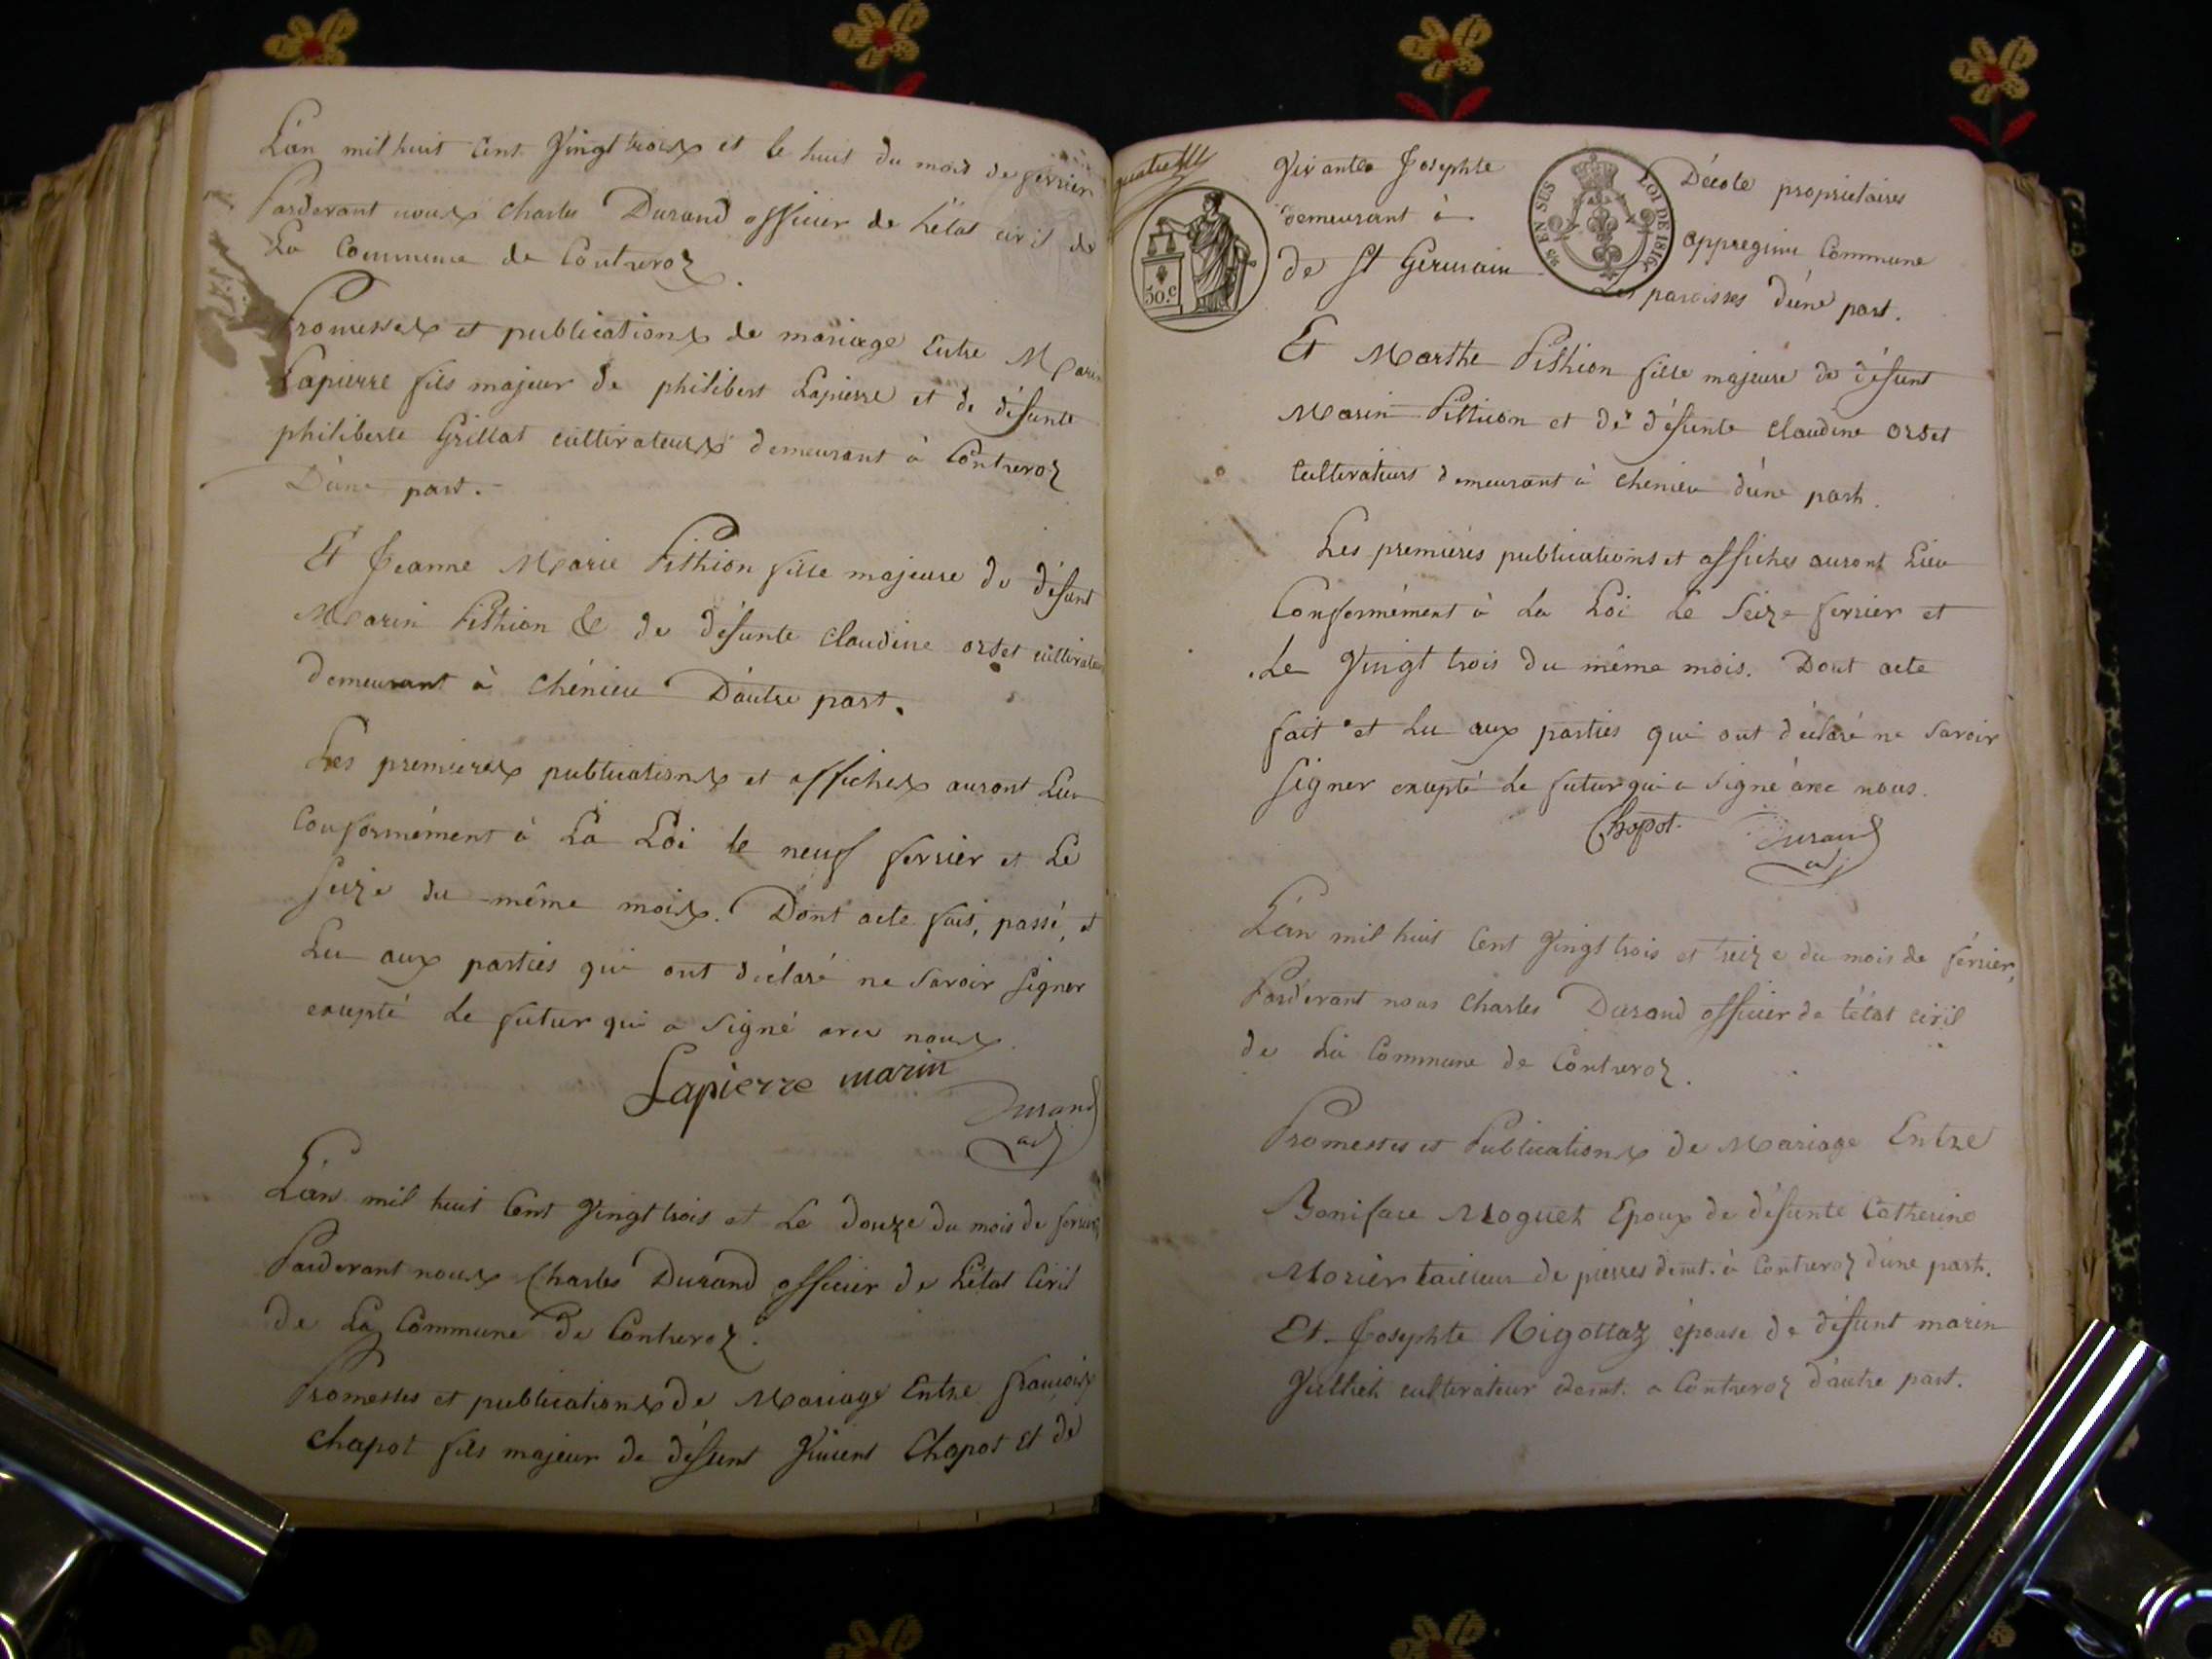 L'an mil huit Cent Vingt trois et le huit du mois de fevrier
Pardevant nous Charles Durand officier de l'état civil de
La Commune de Contrevoz
Promesses et publications de mariage Entre Marin
Lapierre fils majeur de philibert Lapierre et de défunte
philiberte Grillat cultivateurs demeurant à Contrevoz
D'une part.
Et Jeanne Marie Pithion fille majeure de défunt
Marin Pithion & de défunte Claudine orset cultivateurs
demeurant à Chénieu D'autre part.
Les premieres publications et affiches auront Lieu
Conformément à La Loi le neuf fevrier et Le
Seize du même mois. Dont acte fait, passé, et
Lu aux parties qui ont déclaré ne Savoir Signer
excepté Le futur qui a Signé avec nous
Lapierre marin
Durand
adj
L'an mil huit Cent Vingt trois et Le douze du mois de fevrier
Pardevant nous Charles Durand officier de L'état Civil
de La Commune de Contrevoz.
Promesses et publications de Mariage Entre françois
Chapot fils majeur de défunt Vincent Chapot Et de
50.c
EN SUS
LOI DE 1816
Vivante Josephte Décole propriétaires
demeurant à appregnin Commune
de St Germain Les paroisses d'une part.
Et Marthe Pithion fille majeure de défunt
Marin Pithion et de défunte Claudine orset
Cultivateurs demeurant à Chénieu d'une part.
Les premières publications et affiches auront Lieu
Conformément à La Loi Le Seize fevrier et
Le Vingt trois du même mois. Dont acte
fait et Lu aux parties qui ont déclaré ne Savoir
Signer excepté Le futur qui a Signé avec nous.
Chapot. Durand
adj
L'an mil huit Cent Vingt trois et seize du mois de février,
Pardevant nous Charles Durand officier de l'état civil
de La Commune de Contrevoz.
Promesses et Publications de Mariage Entre
Boniface Moguet Epoux de défunte Catherine
Morier tailleur de pierres demt. à Contrevoz d'une part.
Et Josephte Rigottaz épouse de défunt marin
Julliet cultivateur demt. a Contrevoz d'autre part.